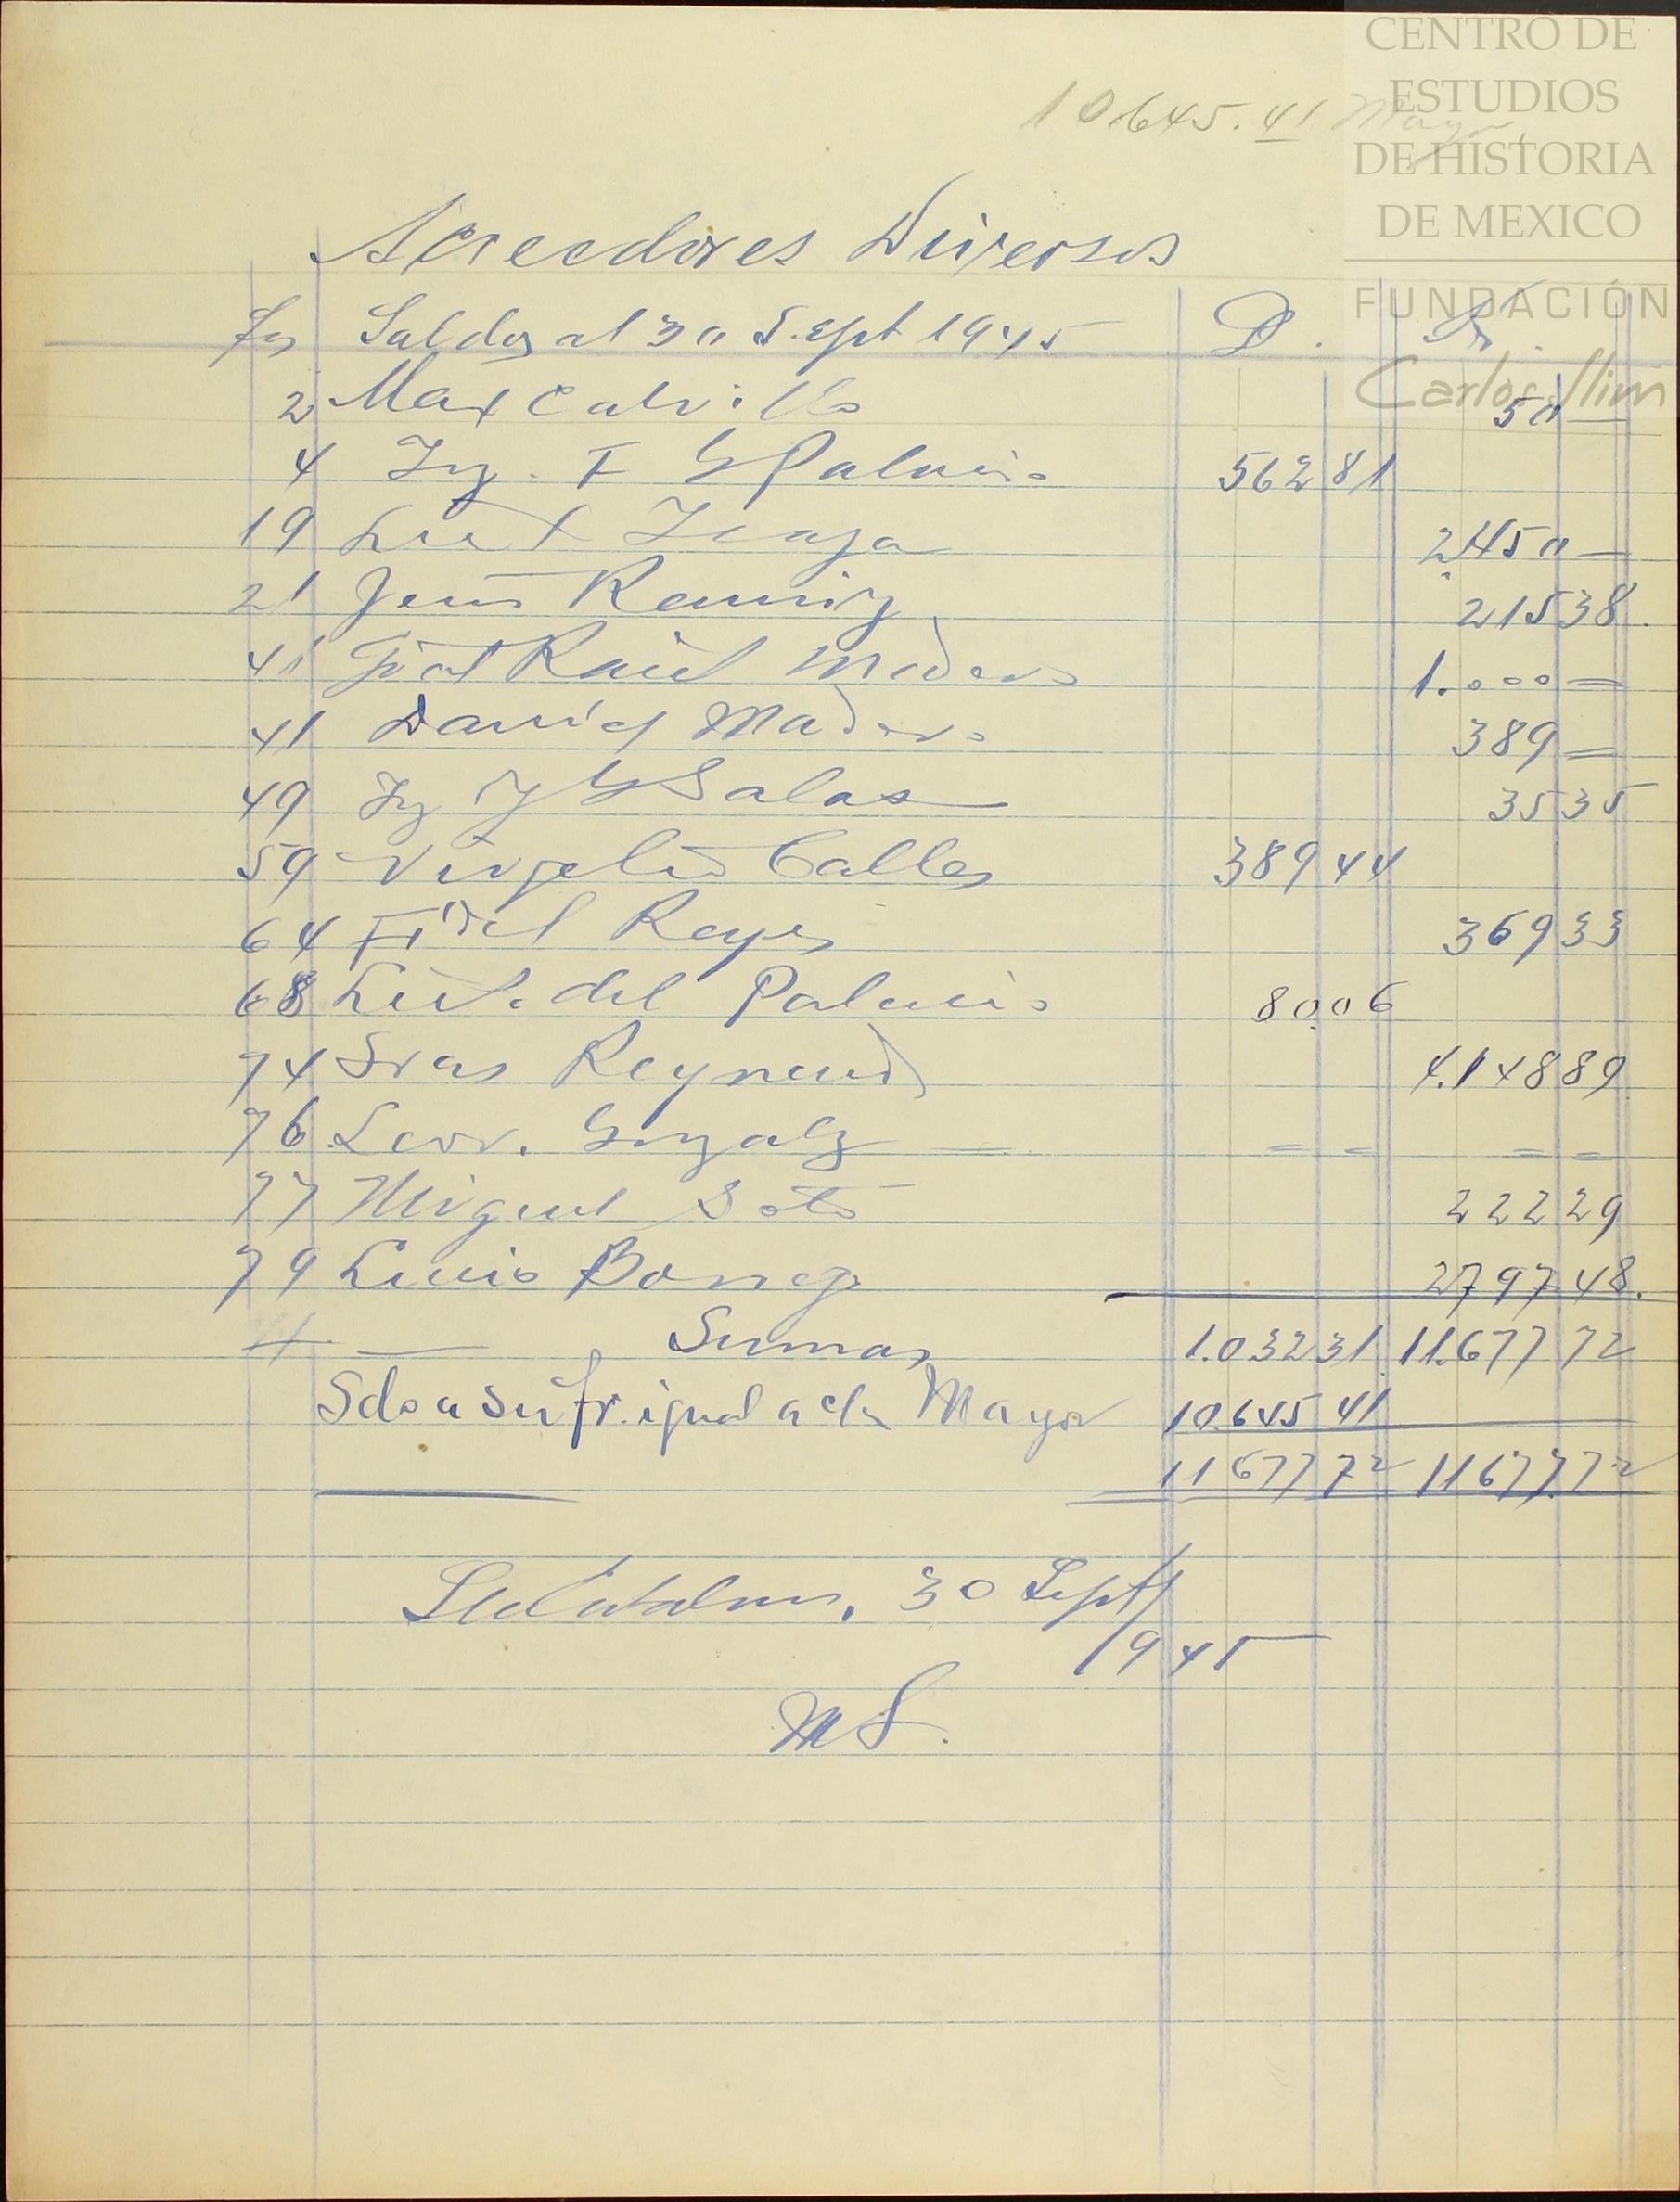 CENTRO DE
ESTUDIOS
DE HISTORIA
DE MEXICO
FUNDACIÓN
Carlos Slim
10.645.41 Mayor
Acreedores Diversos
Fos Saldos al 30 Sept 1945 D. Fr.
2 Max Calvillo 50 —
4 Ing. F G Palacio 562 81
19 2,450 —
21 Jesus Ramirez 215 38.
41 Gral Raul Madero 1.000 =
41 David Madero 389 =
49 Ing J G Salas 35 35
59 Virgelio Calles 389 44
64 Fidel Reyes 369 33
68 Lic. del Palacio 80.06
74 Sras Reynaud 4.148 89
76 Leor. Gonzalz — = = = =
77 Miguel Soto 222 29
79 2797 48.
Sumas 1.032 31 11.677 72
Sdo a su fr. igual a cta Mayor 10.645 41
11677 72 11677 72
30 Sept/
1945
MS.